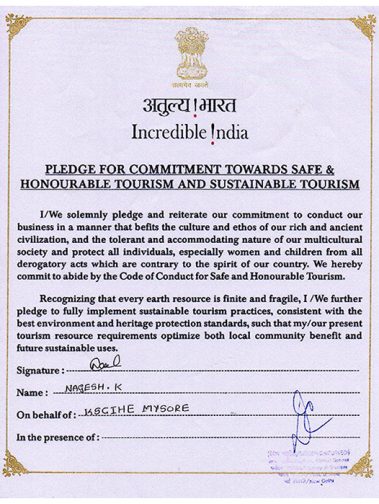 सत्यमेव जयते
अतुल्य!भारत
Incredible!ndia
PLEDGE FOR COMMITMENT TOWARDS SAFE &
HONOURABLE TOURISM AND SUSTAINABLE TOURISM
I/We solemnly pledge and reiterate our commitment to conduct our
business in a manner that befits the culture and ethos of our rich and ancient
civilization, and the tolerant and accommodating nature of our multicultural
society and protect all individuals, especially women and children from all
derogatory acts which are contrary to the spirit of our country. We hereby
commit to abide by the Code of Conduct for Safe and Honourable Tourism.
Recognizing that every earth resource is finite and fragile, I /We further
pledge to fully implement sustainable tourism practices, consistent with the
best environment and heritage protection standards, such that my/our present
tourism resource requirements optimize both local community benefit and
future sustainable uses.
Signature :
Name : NAGESH.K
On behalf of : KSGIHE MYSORE
In the presence of :
नई दिल्ली/New Delhi